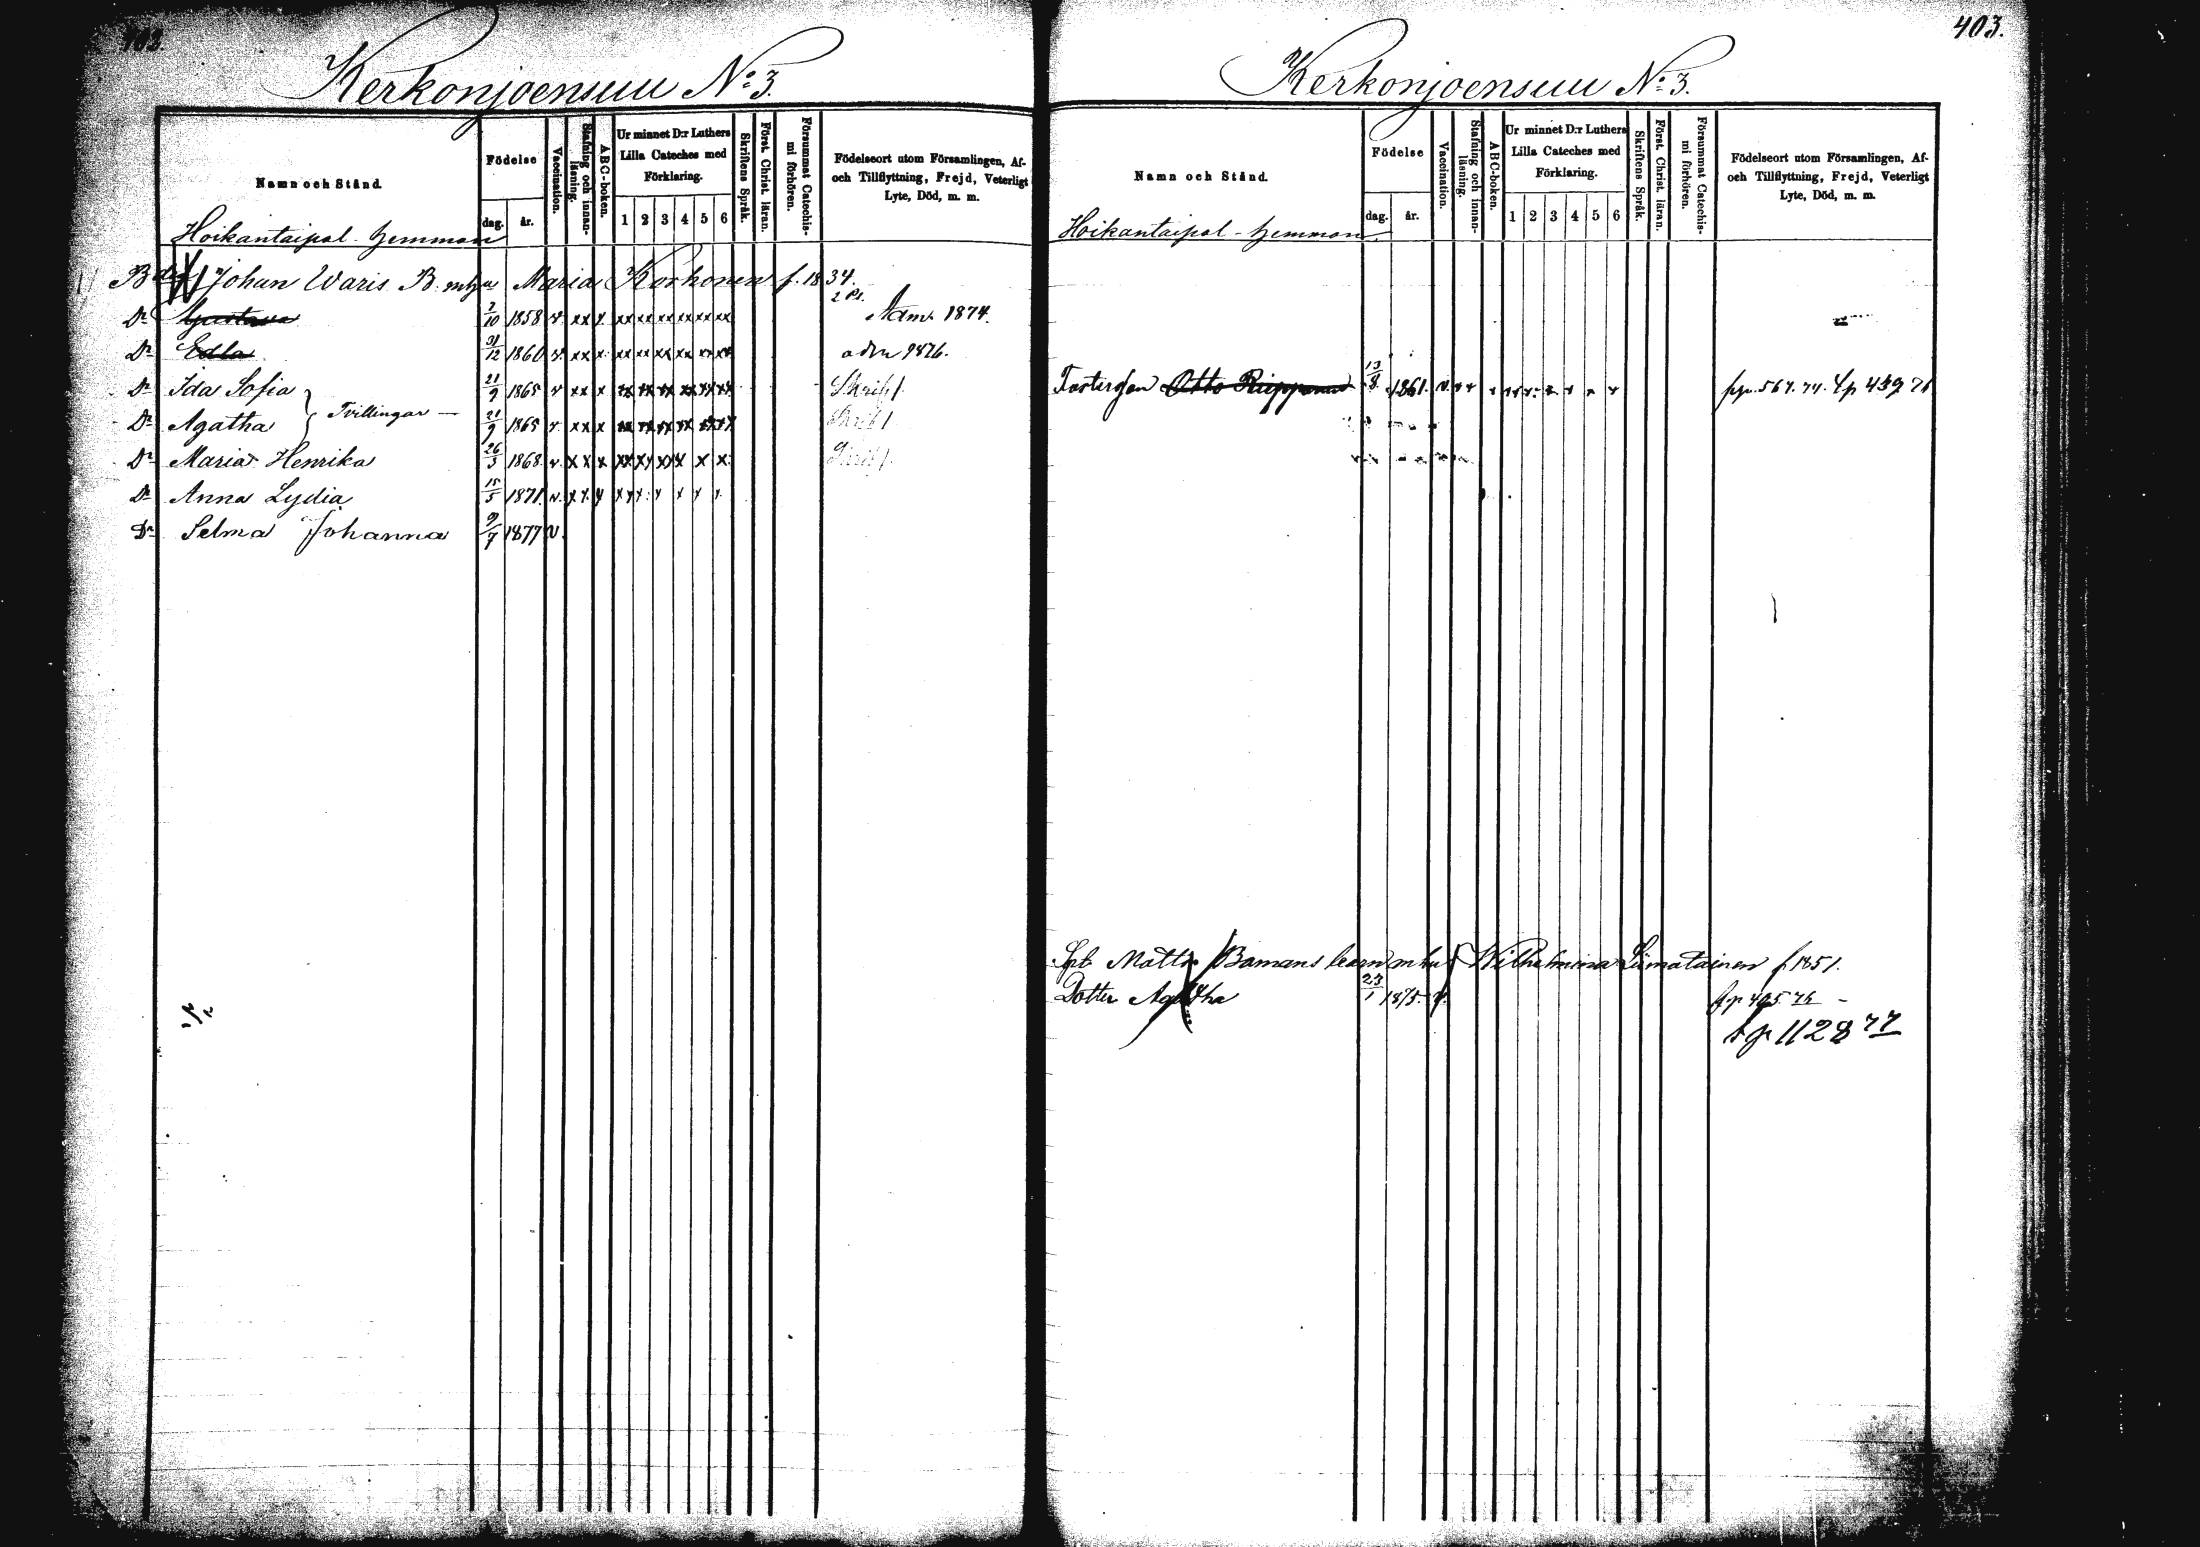 403.
Kerkonjoensuu No 3.
Namn och Stånd.
Födelse
dag.
år.
Vaccination.
Stafning och innan-
läsning.
ABC-boken.
Ur minnet D:r Luthers
Lilla Cateches med
Förklaring.
1 2 3 4 5 6
Skriftens Språk.
Först. Christ. läran.
Försummat Catechis-
mi förhören.
Födelseort utom Församlingen, Af-
och Tillflyttning, Frejd, Veterligt
Lyte, Död, m. m.
Hoikantaipal hemman
Johan Waris B. m hu Maria Korhonen f. 1834.
Dr Gustava 2/10 1858 v. xx x. xx xx xx xx xx xx Adm. 1874.
Dr Edla 31/12 1860 v. xx x xx xx xx xx xx xx adm 1876.
Dr Ida Sofia 21/9 1865 v xx x xx xx xx xx xx xx Skrift
Tvillingar
Dr Agatha 21/9 1865 v. xx x xx xx xx xx xx xx Skrift
Dr Maria Henrika 26/3 1868 v. x x x xx xx xx x x x Skrift
Dr Anna Lydia 15/5 1871. v. x x. x x x x x x x x
Dr Selma Johanna 9/7 1877 v.
403.
Kerkonjoensuu No 3.
Namn och Stånd.
Födelse
dag.
år.
Vaccination.
Stafning och innan-
läsning.
ABC-boken.
Ur minnet D:r Luthers
Lilla Cateches med
Förklaring.
1 2 3 4 5 6
Skriftens Språk.
Först. Christ. läran.
Försummat Catechis-
mi förhören.
Födelseort utom Församlingen, Af-
och Tillflyttning, Frejd, Veterligt
Lyte, Död, m. m.
Hoikantaipal-hemman.
Otto Riepponen 13/8 1861. v. x x x x x x x x x fp. 567. 74. tp 439 76
Matts Bomans barn m hu Wilhelmina Liimatainen f. 1851.
Dotter Agatha 23/1 1875. v. fp 405. 76 -
tp 1128 77